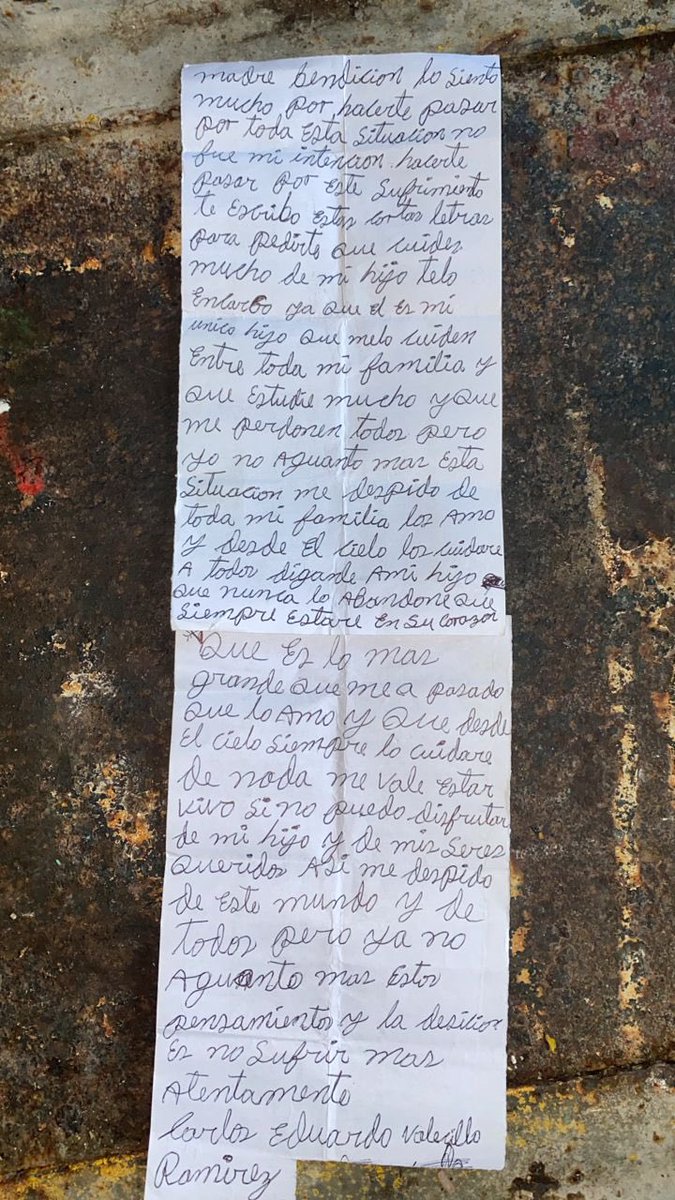 madre bendicion lo siento
mucho por hacerte pasar
por toda Esta Situacion no
fue mi intencion hacerte
pasar por Este Sufrimiento
te Escribo Estas cortas letras
para pedirte que cuides
mucho de mi hijo telo
Encargo ya que el Es mi
unico hijo que melo cuiden
Entre toda mi familia y
que Estudie mucho y que
me perdonen todos pero
yo no Aguanto mas Esta
Situacion me despido de
toda mi familia los Amo
y desde El cielo los cuidare
A todos digande Ami hijo
que nunca lo Abandone que
siempre Estare En su corazon
Que Es lo mas
grande que me a pasado
que lo Amo y que desde
El cielo siempre lo cuidare
de nada me vale Estar
vivo si no puedo disfrutar
de mi hijo y de mis seres
queridos Asi me despido
de Este mundo y de
todos pero ya no
Aguanto mas Estos
pensamientos y la desicion
Es no Sufrir mas
Atentamente
Carlos Eduardo Valecillo
Ramirez